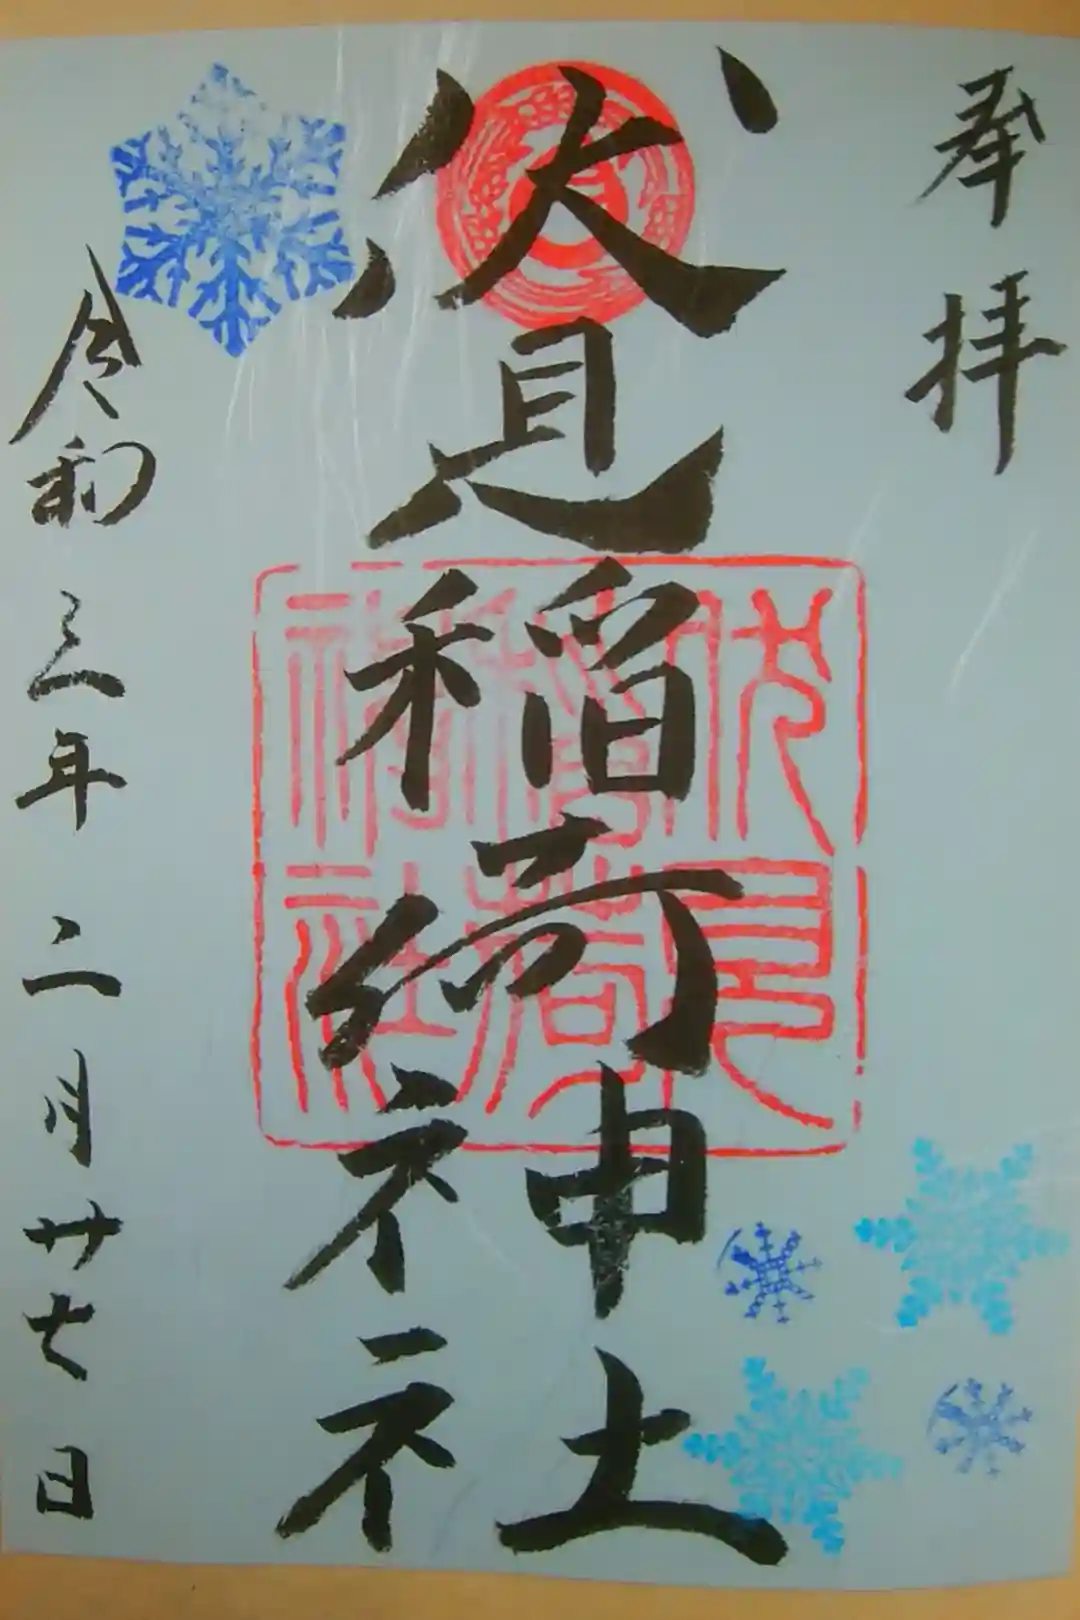 奉拝
伏見稲荷神社
伏見稲荷神社
令和三年二月廿七日